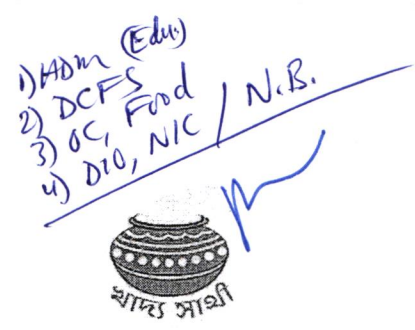 1) ADM (Edu.)
2) DCFS
3) OC, Food
4) DIO, NIC / N.B.
খাদ্য সাথী